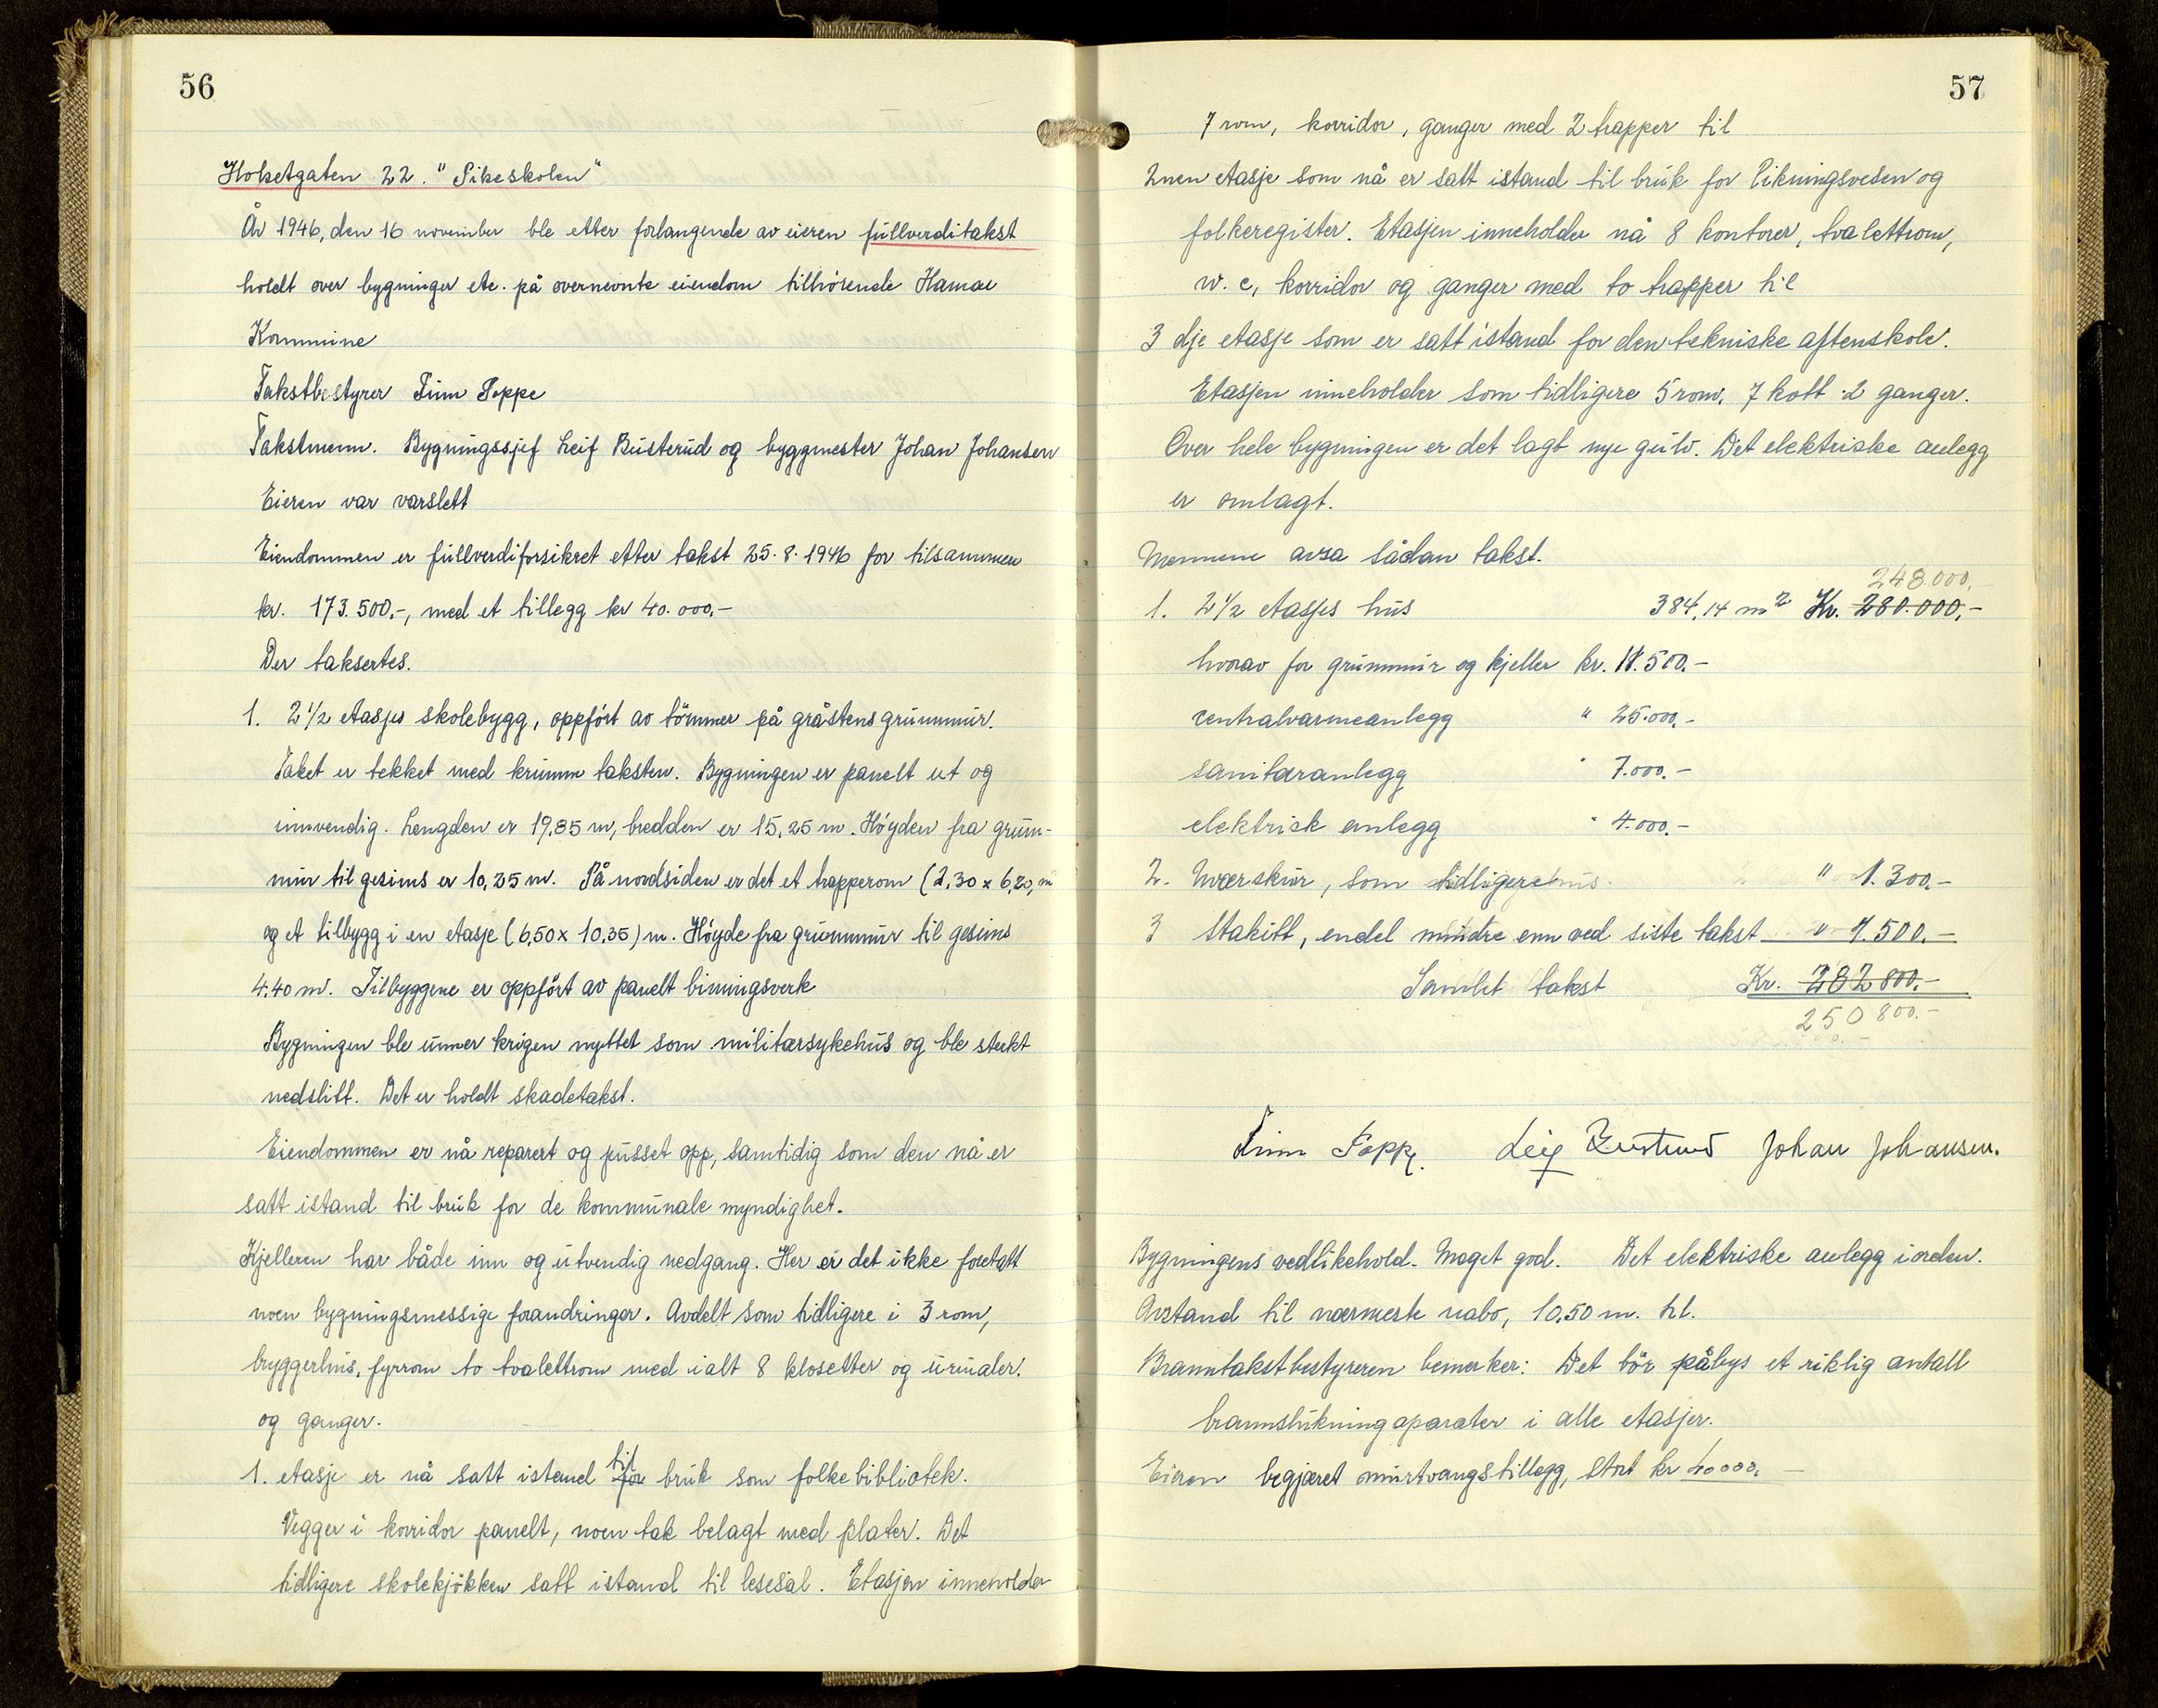 56
Holsetgaten 22. "Pikeskolen"
År 1946, den 16 november ble etter forlangende av eieren fullverditakst
holdt over bygninger etc. på overnevnte eiendom tilhörende Hamar
Kommune
Takstbestyrer Finn Poppe
Takstmenn. Bygningssjef Leif Busterud og byggmester Johan Johansen
Eieren var varslett
Eiendommen er fullverdiforsikret etter takst 25.8.1946 for tilsammen
kr. 173.500,-, med et tillegg kr 40.000,-
Der taksertes.
1. 2 1/2 etasjes skolebygg, oppfört av tömmer på gråstens grunnmur.
Taket er tekket med krumm taksten. Bygningen er panelt ut og
innvendig. Lengden er 19,85 m, bredden er 15,25 m. Höyden fra grunn-
mur til gesims er 10,35 m. På nordsiden er det et trapperom (2,30 x 6,20, m
og et tilbygg i en etasje (6,50 x 10,35) m. Höyde fra grunnmur til gesims
4,40 m. Tilbyggene er oppfört av panelt binningsverk
Bygningen ble unner krigen nyttet som militærsykehus og ble sterkt
nedslitt. Det er holdt skadetakst.
Eiendommen er nå reparert og pusset opp, samtidig som den nå er
satt istand til bruk for de kommunale myndighet.
Kjelleren har både inn og utvendig nedgang. Her er det ikke foretatt
noen bygningsmessige forandringer. Avdelt som tidligere i 3 rom,
bryggerhus, fyrrom to toalettrom med ialt 8 klosetter og urinaler.
og ganger.
1. etasje er nå satt istand for til bruk som folkebibliotek.
Vegger i korridor panelt, noen tak belagt med plater. Det
tidligere skolekjökken satt istand til lesesal. Etasjen inneholder
57
7 rom, korridor, ganger med 2 trapper til
2nen etasje som nå er satt istand til bruk for likningsvesen og
folkeregister. Etasjen inneholder nå 8 kontorer, toalettrom,
w. c, korridor og ganger med to trapper til
3 dje etasje som er satt istand for den tekniske aftenskole.
Etasjen inneholder som tidligere 5 rom, 7 kott 2 ganger.
Over hele bygningen er det lagt nye gulv. Det elektriske anlegg
er omlagt.
Mennene avsa sådan takst.
248.000,
1. 2 1/2 etasjes hus 384,14 m2 Kr. 280.000,-
hvorav for grunnmur og kjeller kr. 18.500.-
centralvarmeanlegg " 25.000,-
sanitæranlegg " 7.000.-
elektrisk anlegg " 4.000.-
2. skur, som tidligere " 1.300.-
3 Stakitt, endel mindre enn ved siste takst " 1.500.-
Samlet takst Kr. 282 800.-
250 800.-
Finn Poppe. Leif Busterud Johan Johansen.
Bygningens vedlikehold. Meget god. Det elektriske anlegg i orden.
Avstand til nærmeste nabo, 10,50 m. til.
Branntakstbestyreren bemerker: Det bör påbys et riklig antall
brannslukningaparater i alle etasjer.
Eieren begjæret murtvangstillegg, stort kr 40000,-